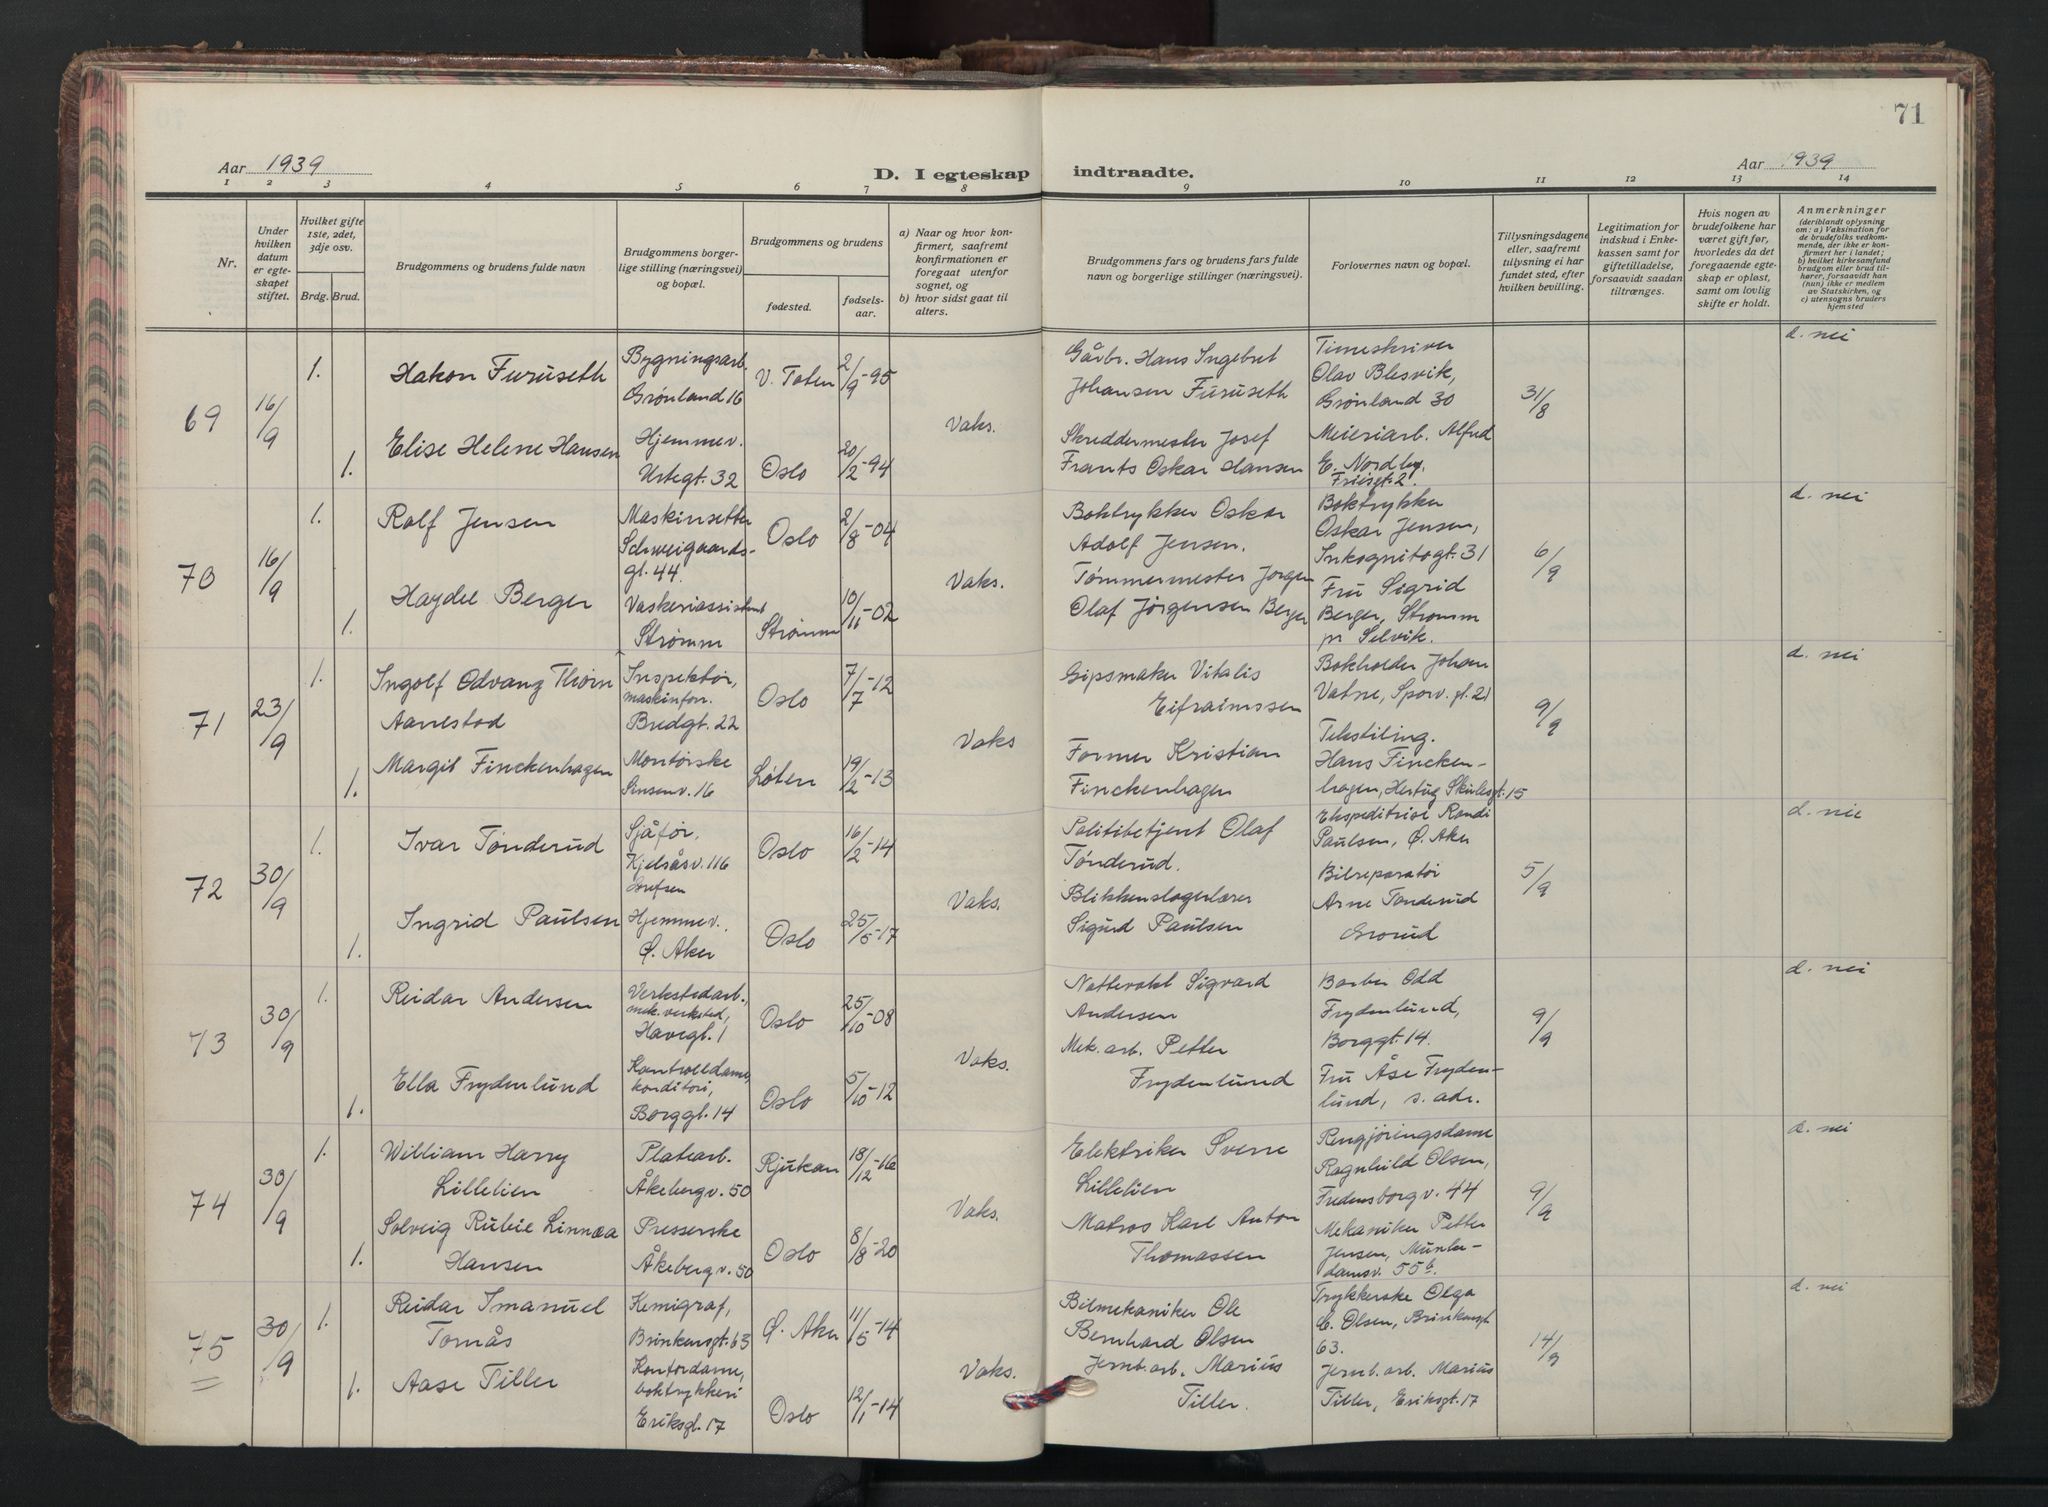 71
Aar 1939
D. I egteskap indtraadte.
Aar 1939
1 2 3 4 5 6 7 8 9 10 11 12 13 14
Nr.
Under hvilken datum er egteskapet stiftet.
Hvilket gifte 1ste, 2det, 3dje osv.
Brdg. Brud.
Brudgommens og brudens fulde navn
Brudgommens borgerlige stilling (næringsvei) og bopæl.
Brudgommens og brudens
fødested.
fødselsaar.
a) Naar og hvor konfirmert, saafremt konfirmationen er foregaat utenfor sognet, og
b) hvor sidst gaat til alters.
Brudgommens fars og brudens fars fulde navn og borgerlige stillinger (næringsvei).
Forlovernes navn og bopæl.
Tillysningsdagene eller, saafremt tillysning ei har fundet sted, efter hvilken bevilling.
Legitimation for indskud i Enkekassen samt for giftetilladelse, forsaavidt saadan tiltrænges.
Hvis nogen av brudefolkene har været gift før, hvorledes da det foregaaende egteskap er opløst, samt om lovlig skifte er holdt.
Anmerkninger
(deriblandt oplysning om: a) Vaksination for de brudefolks vedkommende, der ikke er konfirmert her i landet; b) hvilket kirkesamfund brudgom eller brud tilhører, forsaavidt han (hun) ikke er medlem av Statskirken, og c) utensogns bruders hjemsted
69
16/9
1.
Hakon Furuseth
Bygningsarb.
Grønland 16
V. Toten
2/9-95
Vaks.
Gårbr. Hans Ingebret
Johansen Furuseth
Timeskriver
Olav Blesvik,
Grønland 30
31/8
d. nei
1.
Elise Helene Hansen
Hjemmev.
Urtegt. 32
Oslo
20/2-94
Skreddermester Josef
Frants Oskar Hansen
Meieriarb. Alfred
E. Nordby,
Friisgt. 2.
70
16/9
1.
Rolf Jensen
Maskinsetter
Schweigaards-
gt. 44.
Oslo
2/8-04
Vaks.
Boktrykker Oskar
Adolf Jensen.
Boktrykker
Oskar Jensen,
Inkognitogt. 31
6/9
d. nei
1.
Haydee Berger
Vaskeriassistent
Strømm
Strømm
10/11-02
Tømmermester Jørgen
Olaf Jørgensen Berger
Fru Sigrid
Berger, Strømm
pr Selvik.
71
23/9
1.
Ingolf Odvang Thorn
Aanestad
Inspektør,
maskinforr.
Bredgt. 22
Oslo
7/7-12
Vaks
Gipsmaker Vitalis
Eifraimssen
Bokholder Johan
Vatne, Sporv. gt. 21
9/9
d. nei
1.
Margit Finckenhagen
Montørske
Sinsenv. 16
Løten
19/2-13
Former Kristian
Finckenhagen
Tekstiling.
Hans Fincken-
hagen, Hertug Skulesgt. 15
72
30/9
1.
Ivar Tønderud
Sjåfør,
Kjelsåsv. 116
Grefsen
Oslo
16/2-14
Vaks.
Politibetjent Olaf
Tønderud.
Ekspeditrise Randi
Paulsen, Ø. Aker
5/9
d. nei
1.
Ingrid Paulsen
Hjemmev.
Ø. Aker
Oslo
25/5-17
Blikkenslagerlærer
Sigurd Paulsen
Bilreparatør
Arne Tønderud
Grorud
73
30/9
1.
Reidar Andersen
Verkstedarb.,
mek. verksted,
Havegt. 1
Oslo
25/10-08
Vaks.
Nattevakt Sigvard
Andersen
Barber Odd
Frydenlund,
Borggt. 14.
9/9
d. nei
1.
Ella Frydenlund
Kontrolldame,
konditori,
Borggt. 14
Oslo
5/10-12
Mek. arb. Petter
Frydenlund
Fru Åse Fryden-
lund, s. adr.
74
30/9
1.
William Harry
Lillelien
Platearb.
Åkebergv. 50
Rjukan
18/12-16
Vaks.
Elektriker Sverre
Lillelien
Rengjøringsdame
Ragnhild Olsen,
Fredensborgv. 44
9/9
d. nei
1.
Solveig Rubie Linnea
Hansen
Presserske
Åkebergv. 50
Oslo
8/8-20
Matros Karl Anton
Thomassen
Mekaniker Petter
Jensen, Munke-
damsv. 55 b.
75
30/9
1.
Reidar Imanuel
Tomås
Kemigraf,
Brinkensgt. 63
Ø. Aker
11/5-14
Vaks.
Bilmekaniker Ole
Bernhard Olsen
Trykkerske Olga
C. Olsen, Brinkensgt
63.
14/9
d. nei
1.
Aase Tiller
Kontordame,
boktrykkeri
Eriksgt. 17
Oslo
12/1-14
Jernb. arb. Marius
Tiller.
Jernb. arb. Marius
Tiller, Eriksgt. 17